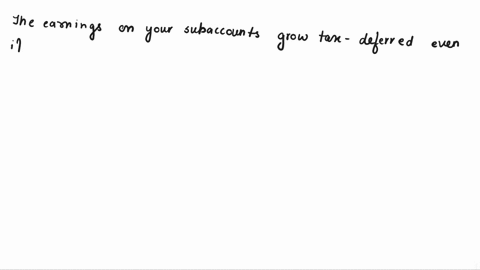 The earnings on your subaccounts grow tax-deferred even
if